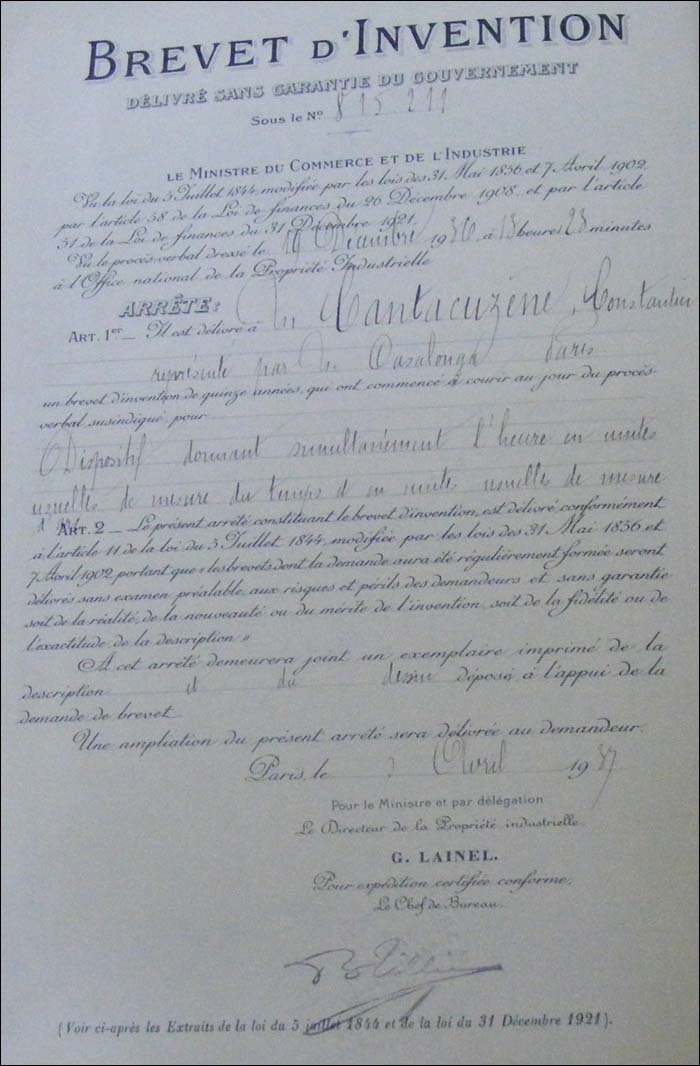 BREVET D'INVENTION
DÉLIVRÉ SANS GARANTIE DU GOUVERNEMENT
Sous le N° 815.211
LE MINISTRE DU COMMERCE ET DE L'INDUSTRIE
Vu la loi du 5 Juillet 1844, modifiée par les lois des 31 Mai 1856 et 7 Avril 1902,
par l'article 58 de la Loi de finances du 26 Décembre 1908, et par l'article
51 de la Loi de finances du 31 Décembre 1921,
Vu le procès-verbal dressé le Décembre 1936, à heures 28 minutes
à l'Office national de la Propriété Industrielle
ARRÊTE:
ART. 1er._ Il est délivré à Mr Cantacuzène, Constantin
représenté par Mr Casalonga Paris
un brevet d'invention de quinze années, qui ont commencé à courir au jour du procès-
verbal susindiqué, pour
Dispositif donnant simultanément l'heure en unités
usuelles de mesure du temps et en unités usuelles de mesure
d'arc
ART. 2_ Le présent arrêté constituant le brevet d'invention, est délivré conformément
à l'article 11 de la loi du 5 Juillet 1844, modifiée par les lois des 31 Mai 1856 et
7 Avril 1902 portant que «les brevets dont la demande aura été régulièrement formée seront
délivrés sans examen préalable, aux risques et périls des demandeurs et sans garantie
soit de la réalité, de la nouveauté ou du mérite de l'invention, soit de la fidélité ou de
l'exactitude de la description.»
A cet arrêté demeurera joint un exemplaire imprimé de la
description et du dessin déposé à l'appui de la
demande de brevet.
Une ampliation du présent arrêté sera délivrée au demandeur.
Paris, le 3 Avril 1937
Pour le Ministre et par délégation
Le Directeur de la Propriété industrielle.
G. LAINEL.
Pour expédition certifiée conforme,
Le Chef de Bureau.
(Voir ci-après les Extraits de la loi du 5 juillet 1844 et de la loi du 31 Décembre 1921).